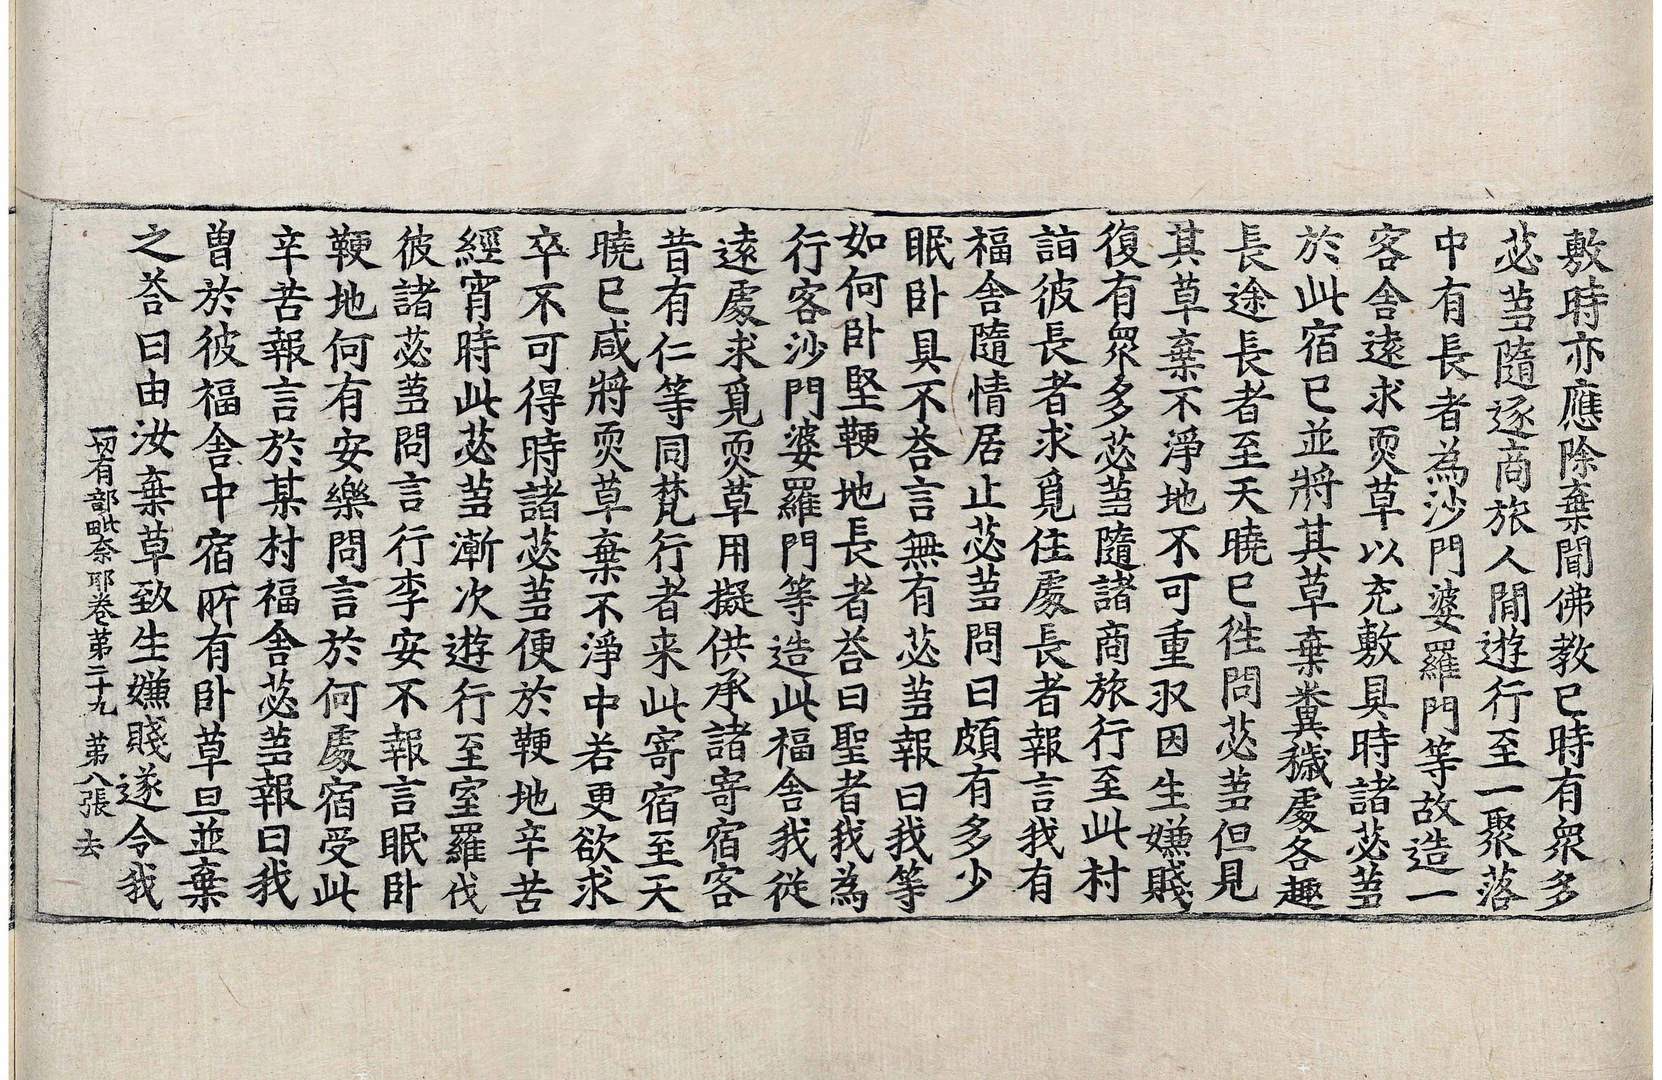 敷時亦應除棄聞佛教已時有眾多
苾芻隨逐商旅人間遊行至一聚落
中有長者為沙門婆羅門等故造一
客舍遠求耎草以充敷具時諸苾芻
於此宿已並將其草棄糞穢處各趣
長途長者至天曉已徃問苾芻但見
其草棄不淨地不可重収因生嫌賤
復有眾多苾芻隨諸商旅行至此村
詣彼長者求覓住處長者報言我有
福舍隨情居止苾芻問曰頗有多少
眠卧具不荅言無有苾芻報曰我等
如何卧堅鞕地長者荅曰聖者我為
行客沙門婆羅門等造此福舍我從
遠處求覓耎草用擬供承諸寄宿客
昔有仁等同梵行者来此寄宿至天
曉已咸將耎草棄不淨中若更欲求
卒不可得時諸苾芻便於鞕地辛苦
經宵時此苾芻漸次遊行至室羅伐
彼諸苾芻問言行李安不報言眠卧
鞕地何有安樂問言於何處宿受此
辛苦報言於某村福舍苾芻報曰我
曾於彼福舍中宿所有卧草旦並棄
之荅曰由汝棄草致生嫌賤遂令我
一切有部毗奈耶卷第二十九 第八張 去